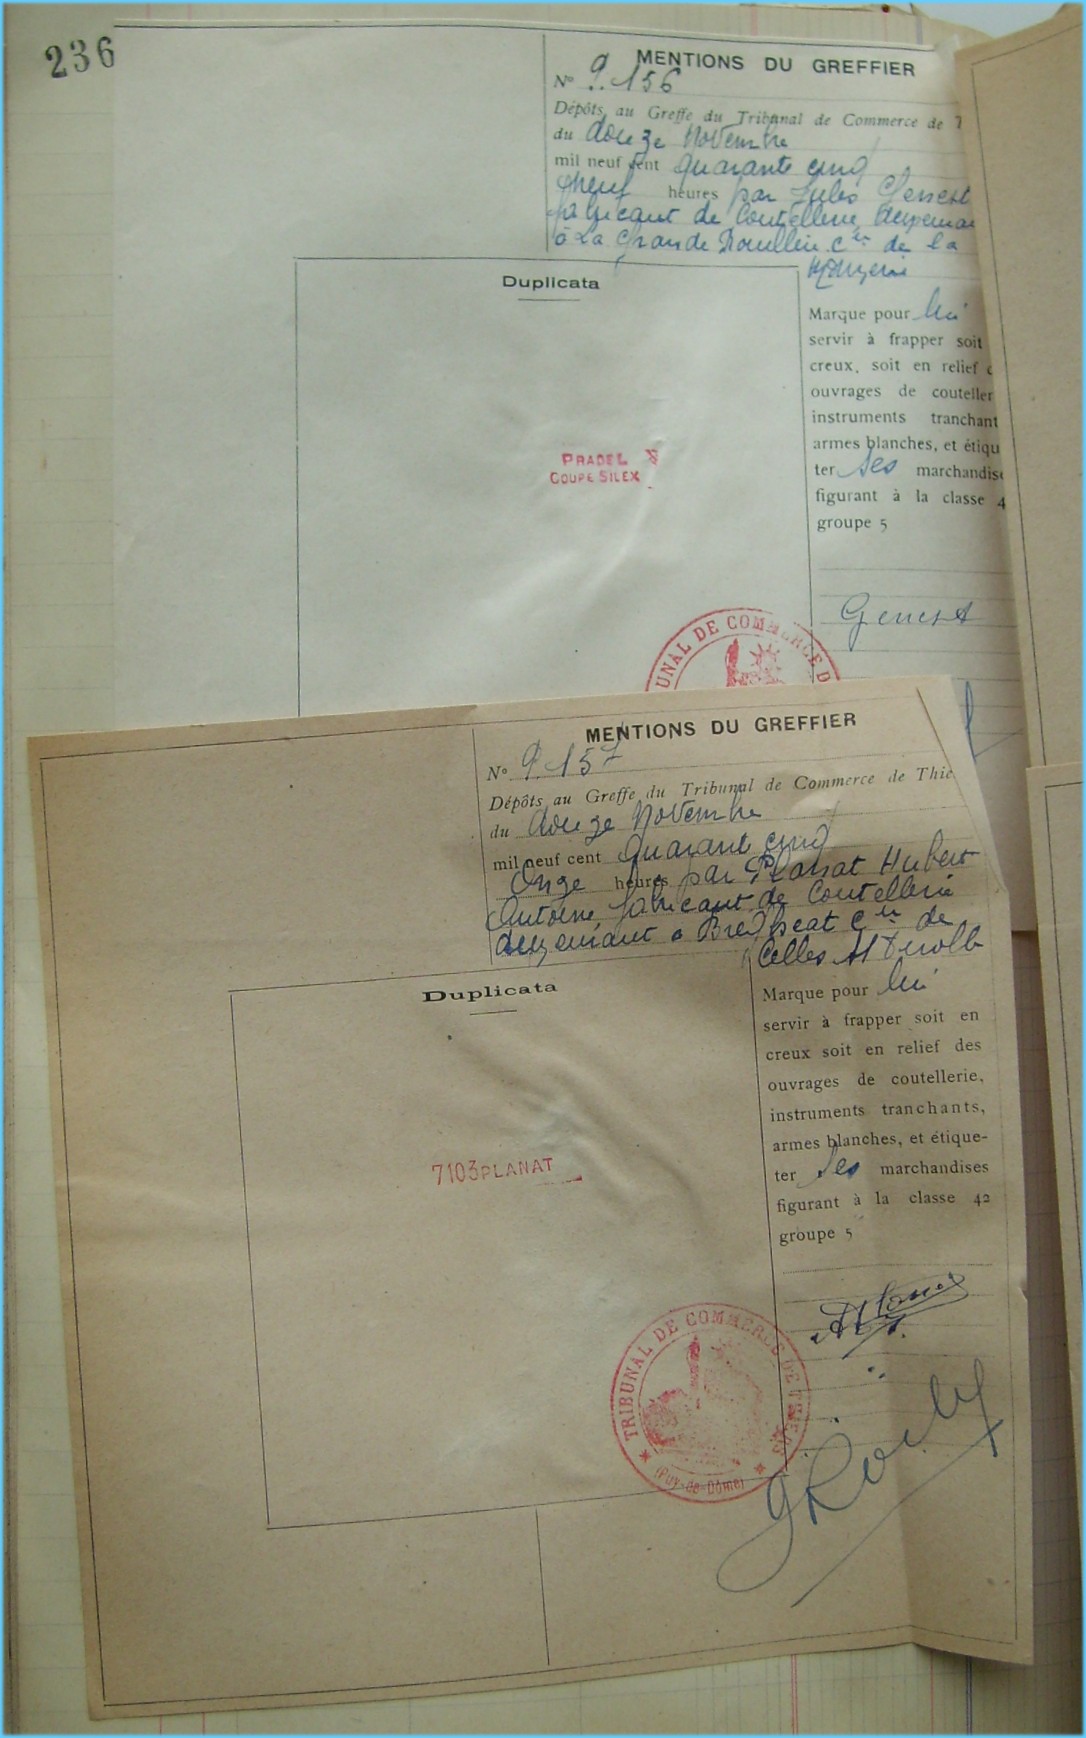 236
MENTIONS DU GREFFIER
N° 9.156
Dépôts au Greffe du Tribunal de Commerce de T
du douze Novembre
mil neuf cent quarante cinq
neuf heures par Jules Genest
fabricant de Coutellerie, demeurant
à La Grande c^ne de la
Duplicata
Marque pour lui
servir à frapper soit
creux, soit en relief d
ouvrages de couteller
instruments tranchant
armes blanches, et étiqu
ter ses marchandise
figurant à la classe 4
groupe 5
PRADEL X
COUPE SILEX
Genest
UNAL DE COMMERCE D
MENTIONS DU GREFFIER
N° 9.157
Dépôts au Greffe du Tribunal de Commerce de Thie
du douze Novembre
mil neuf cent quarante cinq
Onze heures par Planat Hubert
Antoine, fabricant de Coutellerie
demeurant à c^ne de
Celles s/ Durolle
Duplicata
Marque pour lui
servir à frapper soit en
creux soit en relief des
ouvrages de coutellerie,
instruments tranchants,
armes blanches, et étique-
ter ses marchandises
figurant à la classe 42
groupe 5
7103 PLANAT
TRIBUNAL DE COMMERCE DE THIERS
(Puy-de-Dôme)